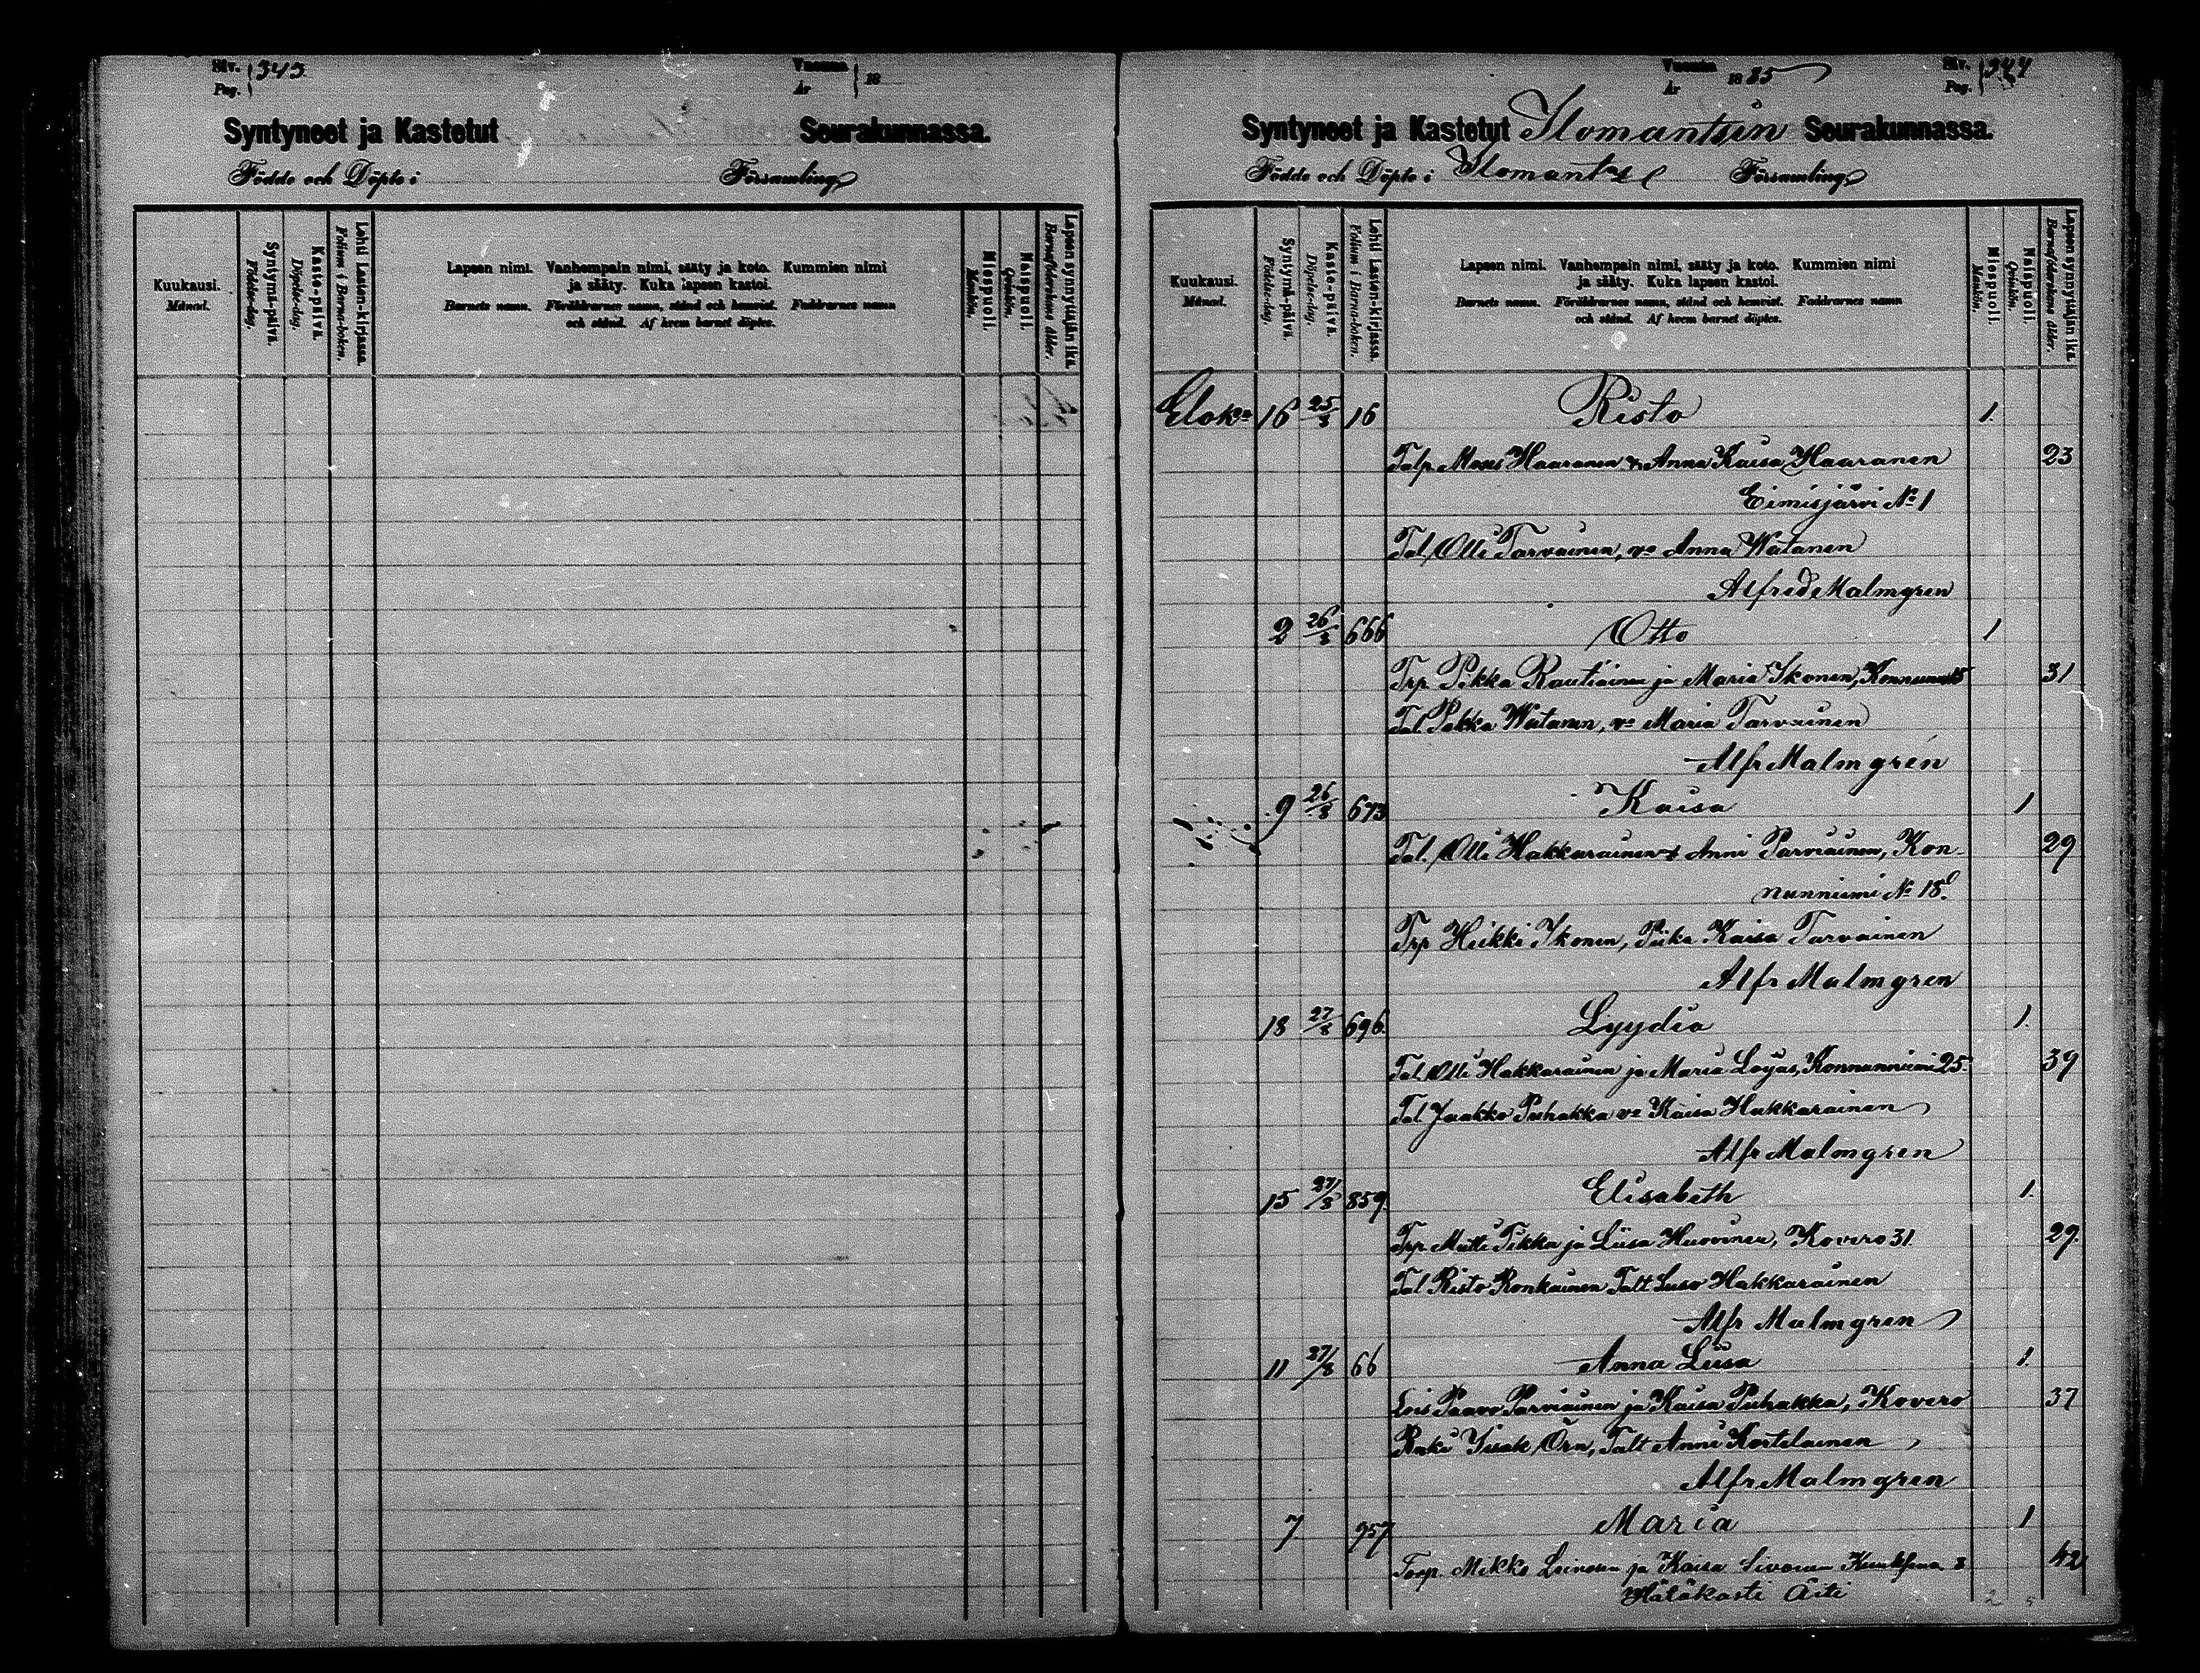 Siv. Pag. 343
Vuonna År 18
Syntyneet ja Kastetut Seurakunnassa.
Födde och Döpte i Församling
Kuukausi. Månad.
Syntymä-päivä. Födelse-dag.
Kaste-päivä. Döpelse-dag.
Lehti Lasten-kirjassa. Folium i Barna-boken.
Lapsen nimi. Vanhempain nimi, sääty ja koto. Kummien nimi
ja sääty. Kuka lapsen kastoi.
Barnets namn. Föräldrarnes namn, stånd och hemvist. Faddrarnes namn
och stånd. Af hvem barnet döptes.
Miespuoli. Mankön.
Naispuoli. Qvinkön.
Lapsen synnyttäjän ikä. Barnaföderskans ålder.
Vuonna År 1885
Siv. Pag. 344
Syntyneet ja Kastetut Ilomantsin Seurakunnassa.
Födde och Döpte i Ilomants Församling
Kuukausi. Månad.
Syntymä-päivä. Födelse-dag.
Kaste-päivä. Döpelse-dag.
Lehti Lasten-kirjassa. Folium i Barna-boken.
Lapsen nimi. Vanhempain nimi, sääty ja koto. Kummien nimi
ja sääty. Kuka lapsen kastoi.
Barnets namn. Föräldrarnes namn, stånd och hemvist. Faddrarnes namn
och stånd. Af hvem barnet döptes.
Miespuoli. Mankön.
Naispuoli. Qvinkön.
Lapsen synnyttäjän ikä. Barnaföderskans ålder.
Elok. 16 25/8 16 Risto 1.
Talp. Moses Haaranen & Anna Kaisa Haaranen 23
Eimisjärvi No 1
Tal. Olli Tarvainen, vo Anna Watanen
Alfred Malmgren
2 26/8 666 Otto 1
Trp Pekka Rautiainen ja Maria Ikonen, 31
Tal Pekka Watanen, vo Maria Tarvainen
Alfr Malmgrén
9 26/8 673 Kaisa 1
Tal. Olli Hakkarainen & Anni Parviainen, Kon- 29
nunniemi No 18.
Trp Heikki Ikonen, Piika Kaisa Tarvainen
Alfr Malmgren
18 27/8 696. Lyydia 1.
Tal. Olli Hakkarainen ja Maria Löyas, Konnunniemi 25. 39
Tal Jaakko Puhakka vo Kaisa Hakkarainen
Alfr Malmgren
15 27/8 859. Elisabeth 1.
Trp Matti Pikka ja Liisa Huovinen, Kovero 31. 29.
Tal Risto Ronkainen Talt Hakkarainen
Alfr Malmgren
11 27/8 66 Anna Liisa 1.
Lois Paavo Parviainen ja Kaisa Puhakka, Kovero 37
Renki Isak Örn, Talt Anni Kostelainen
Alfr Malmgren
7 957 Maria 1.
Torp. Mikko Leinonen ja Kaisa Sivonen 42
Hätäkasti Äiti
2 5